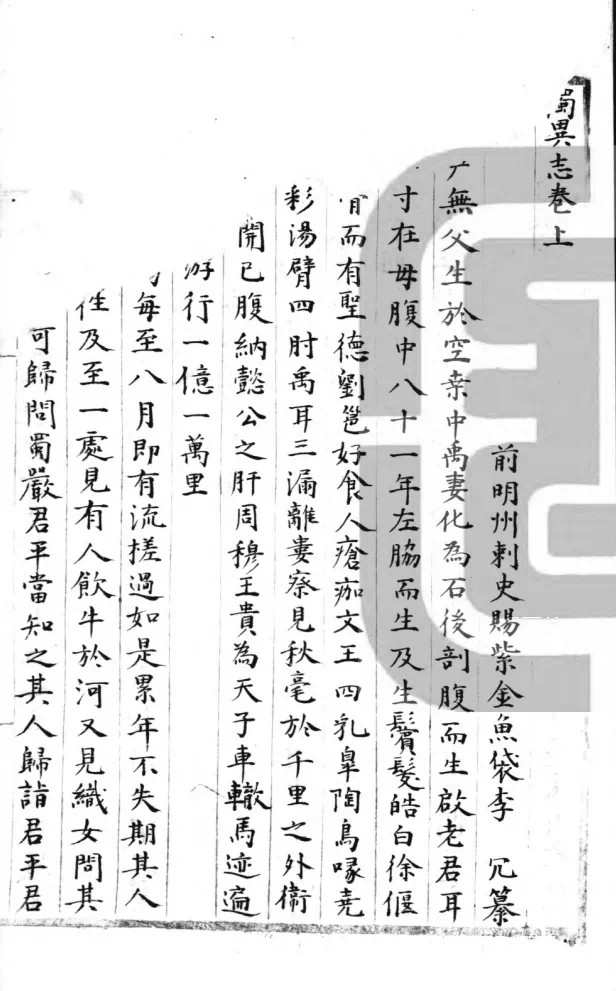 蜀異志卷上
前明州剌史賜紫金魚袋李 冗纂
無父生於空桒中禹妻化為石後剖腹而生啟老君耳
寸在母腹中八十一年左脇而生及生鬢髮皓白徐偃
而有聖德劉邕好食人瘡痂文王四乳臯陶鳥喙尭
彩湯臂四肘禹耳三漏離婁察見秋毫於千里之外衛
開已腹納懿公之肝周穆王貴為天子車轍馬迹遍
游行一億一萬里
每至八月即有流槎過如是累年不失期其人
及至一處見有人飲牛於河又見織女問其
可歸問蜀嚴君平當知之其人歸詣君平君